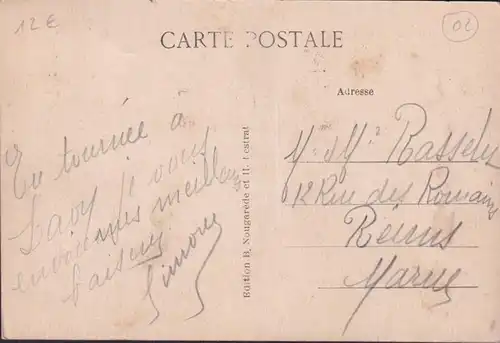 12 €
02
CARTE POSTALE
Adresse
En tournée à
je vous
envoie mes meilleurs
baisers
Simone
Edition B. Nougarède et H. Lestrat
M. M. Rasselu
12 Rue des Romains
Reims
Marne